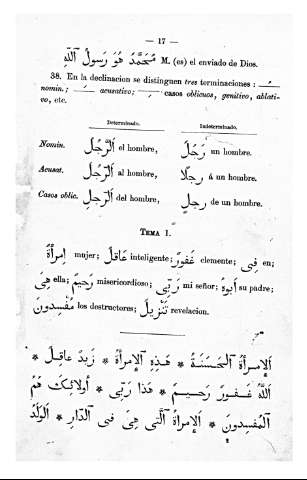 — 17 —
مُحَمَّدٌ هُوَ رَسُولُ ٱللّٰهِ M. (es) el enviado de Dios.
38. En la declinacion se distinguen tres terminaciones :
nomin.; acusativo; casos oblicuos, genitivo, ablati-
vo, etc.
Determinado. Indeterminado.
Nomin. اَلرَّجُلُ el hombre, رَجُلٌ un hombre.
Acusat. اَلرَّجُلَ al hombre, رَجُلًا á un hombre.
Casos oblic. اَلرَّجُلِ del hombre, رَجُلٍ de un hombre.
TEMA 1.
إِمْرَأَةٌ mujer; عَاقِلٌ inteligente; غَفُورٌ clemente; فِى en;
هِىَ ella; رَحِيمٌ misericordioso; رَبِّى mi señor; أَبُوهُ su padre;
مُفْسِدُونَ los destructores; تَنْزِيلٌ revelacion.
اَلإِمْرَأَةُ ٱلْحَسَنَةُ * هٰذِهِ ٱلإِمْرَأَةُ * زَيْدٌ عَاقِلٌ *
اَللّٰهُ غَفُورٌ رَحِيمٌ * هٰذَا رَبِّى * أُولَائِكَ هُمُ
ٱلْمُفْسِدُونَ * اَلإِمْرَأَةُ ٱلَّتِى هِىَ فِى ٱلدَّارِ * اَلْوَلَدُ